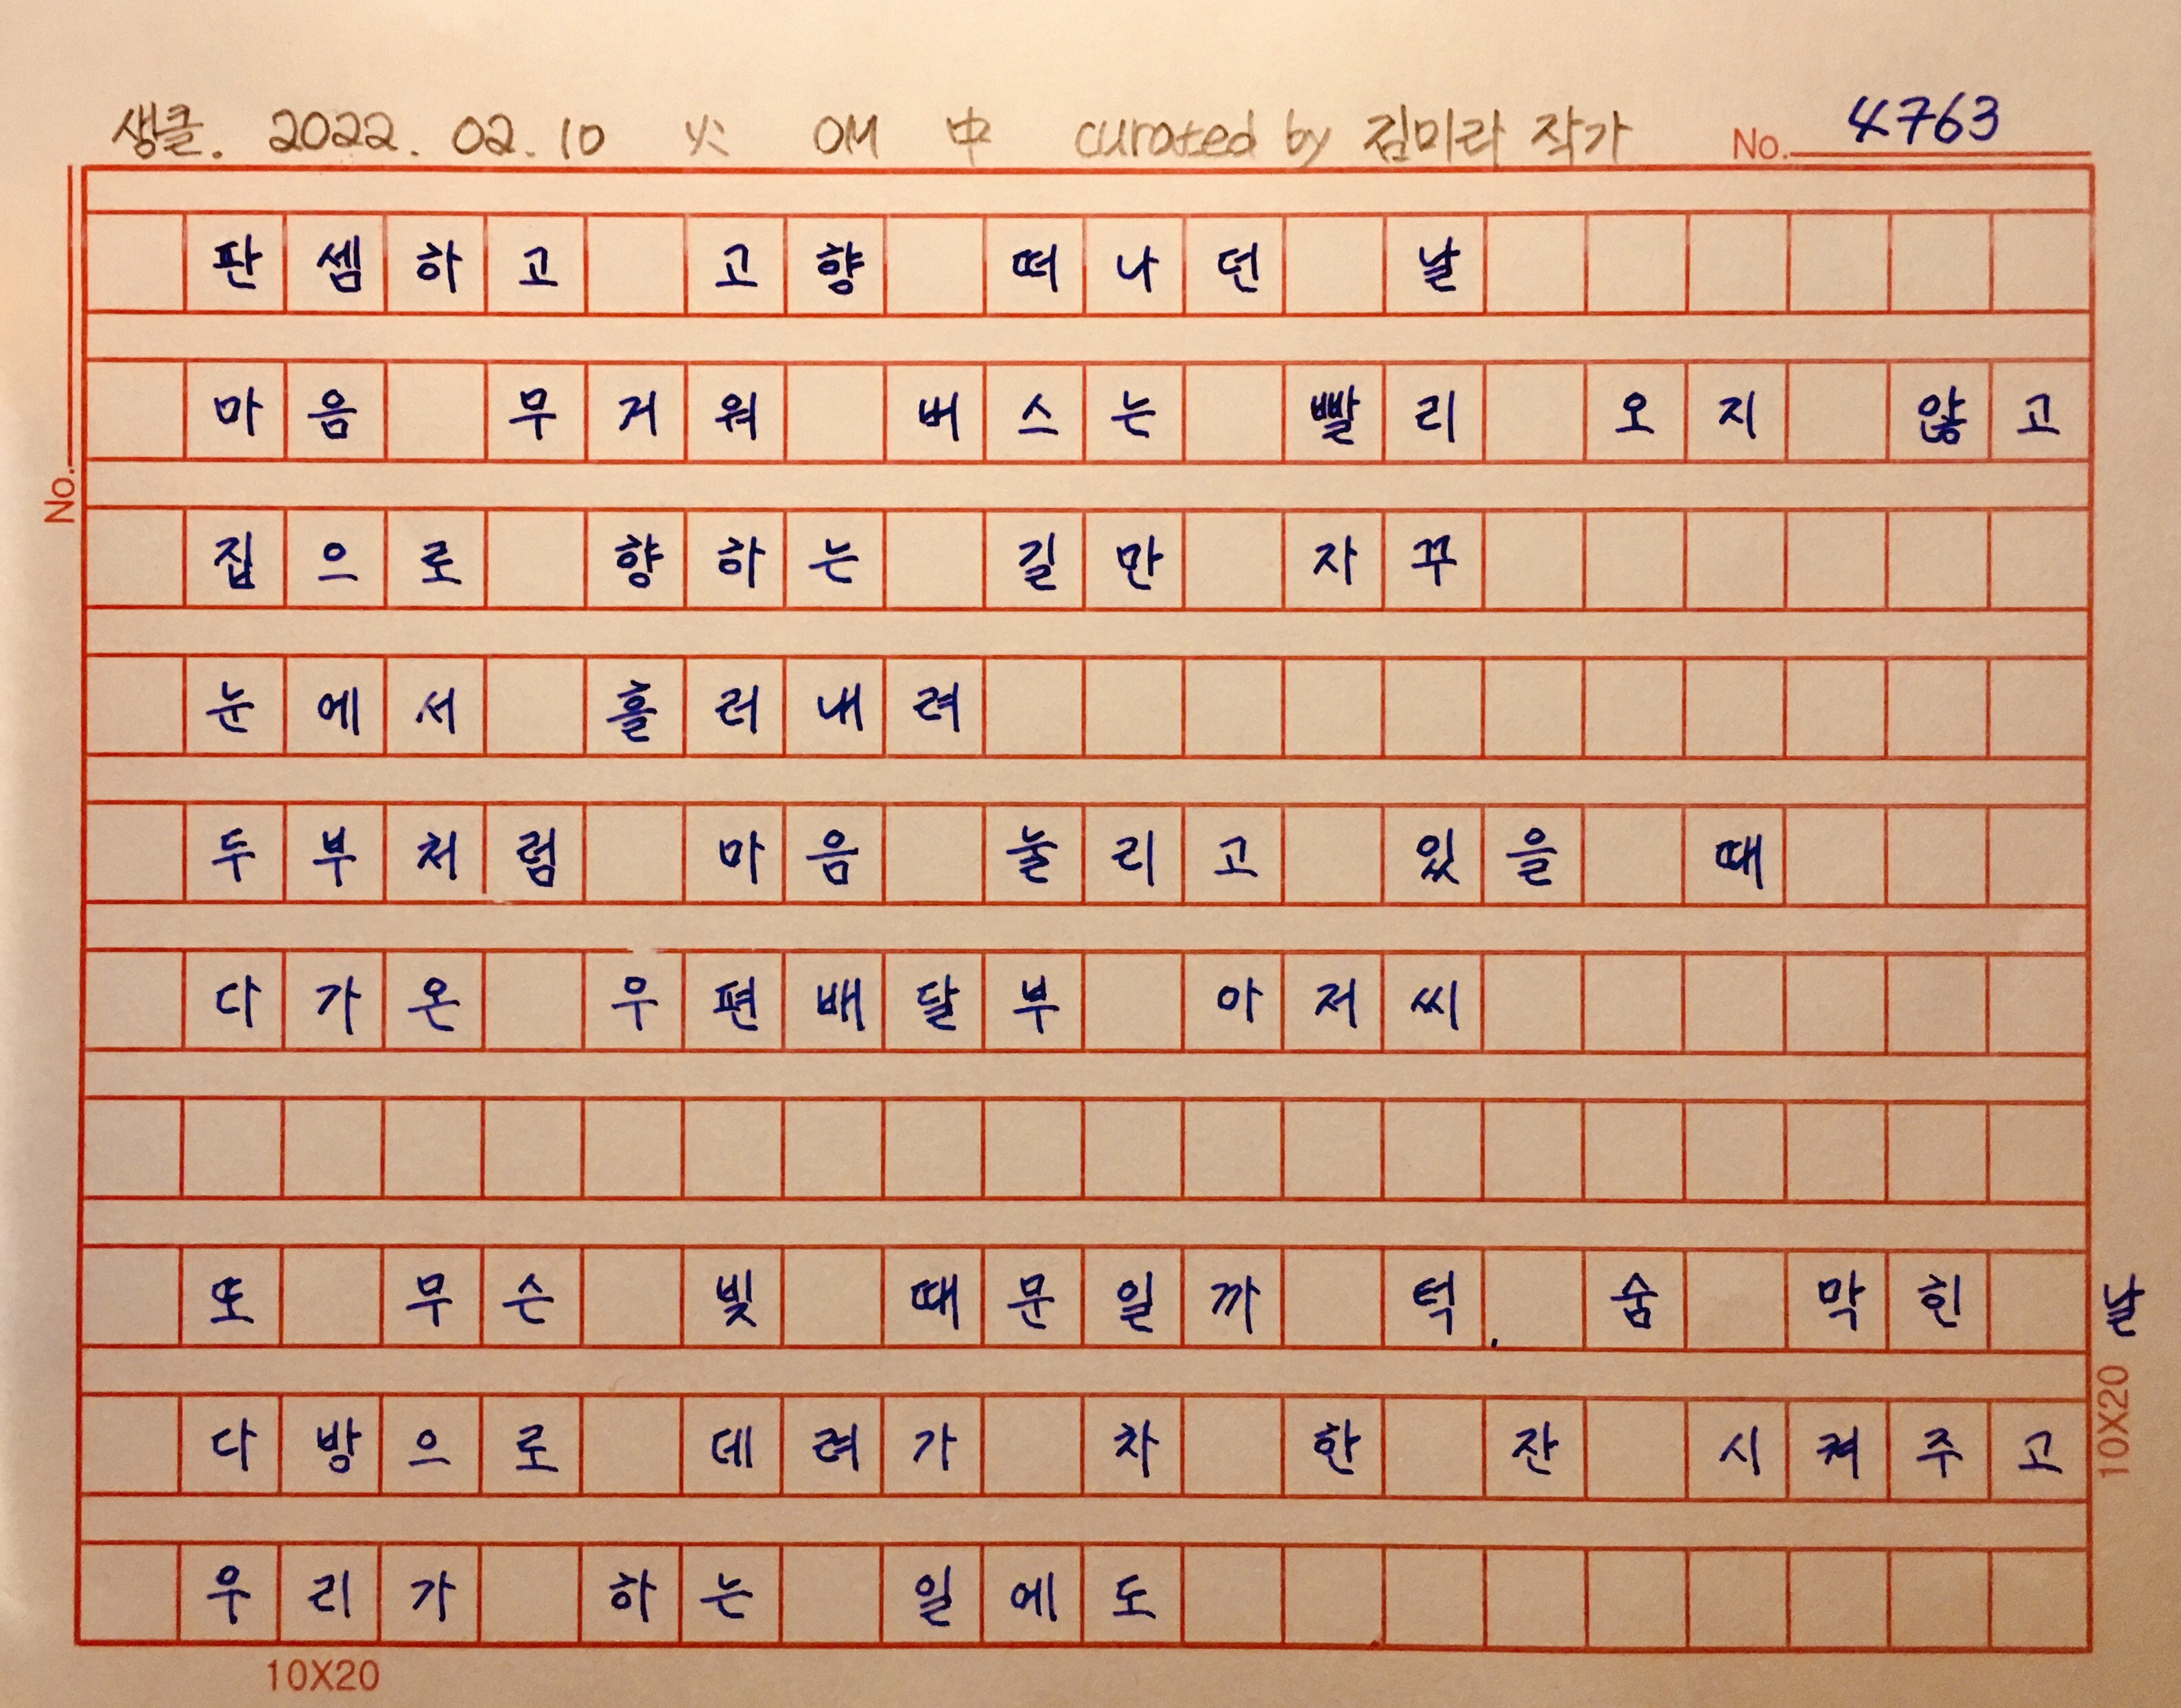 생클. 2022. 02. 10 火 OM 中 curated by 김미라 작가 No. 4763
판셈하고 고향 떠나던 날
마음 무거워 버스는 빨리 오지 않고
집으로 향하는 길만 자꾸
No.
눈에서 흘러내려
두부처럼 마음 눌리고 있을 때
다가온 우편배달부 아저씨
또 무슨 빚 때문일까 턱. 숨 막힌 날
다방으로 데려가 차 한 잔 시켜주고
10X20
우리가 하는 일에도
10X20